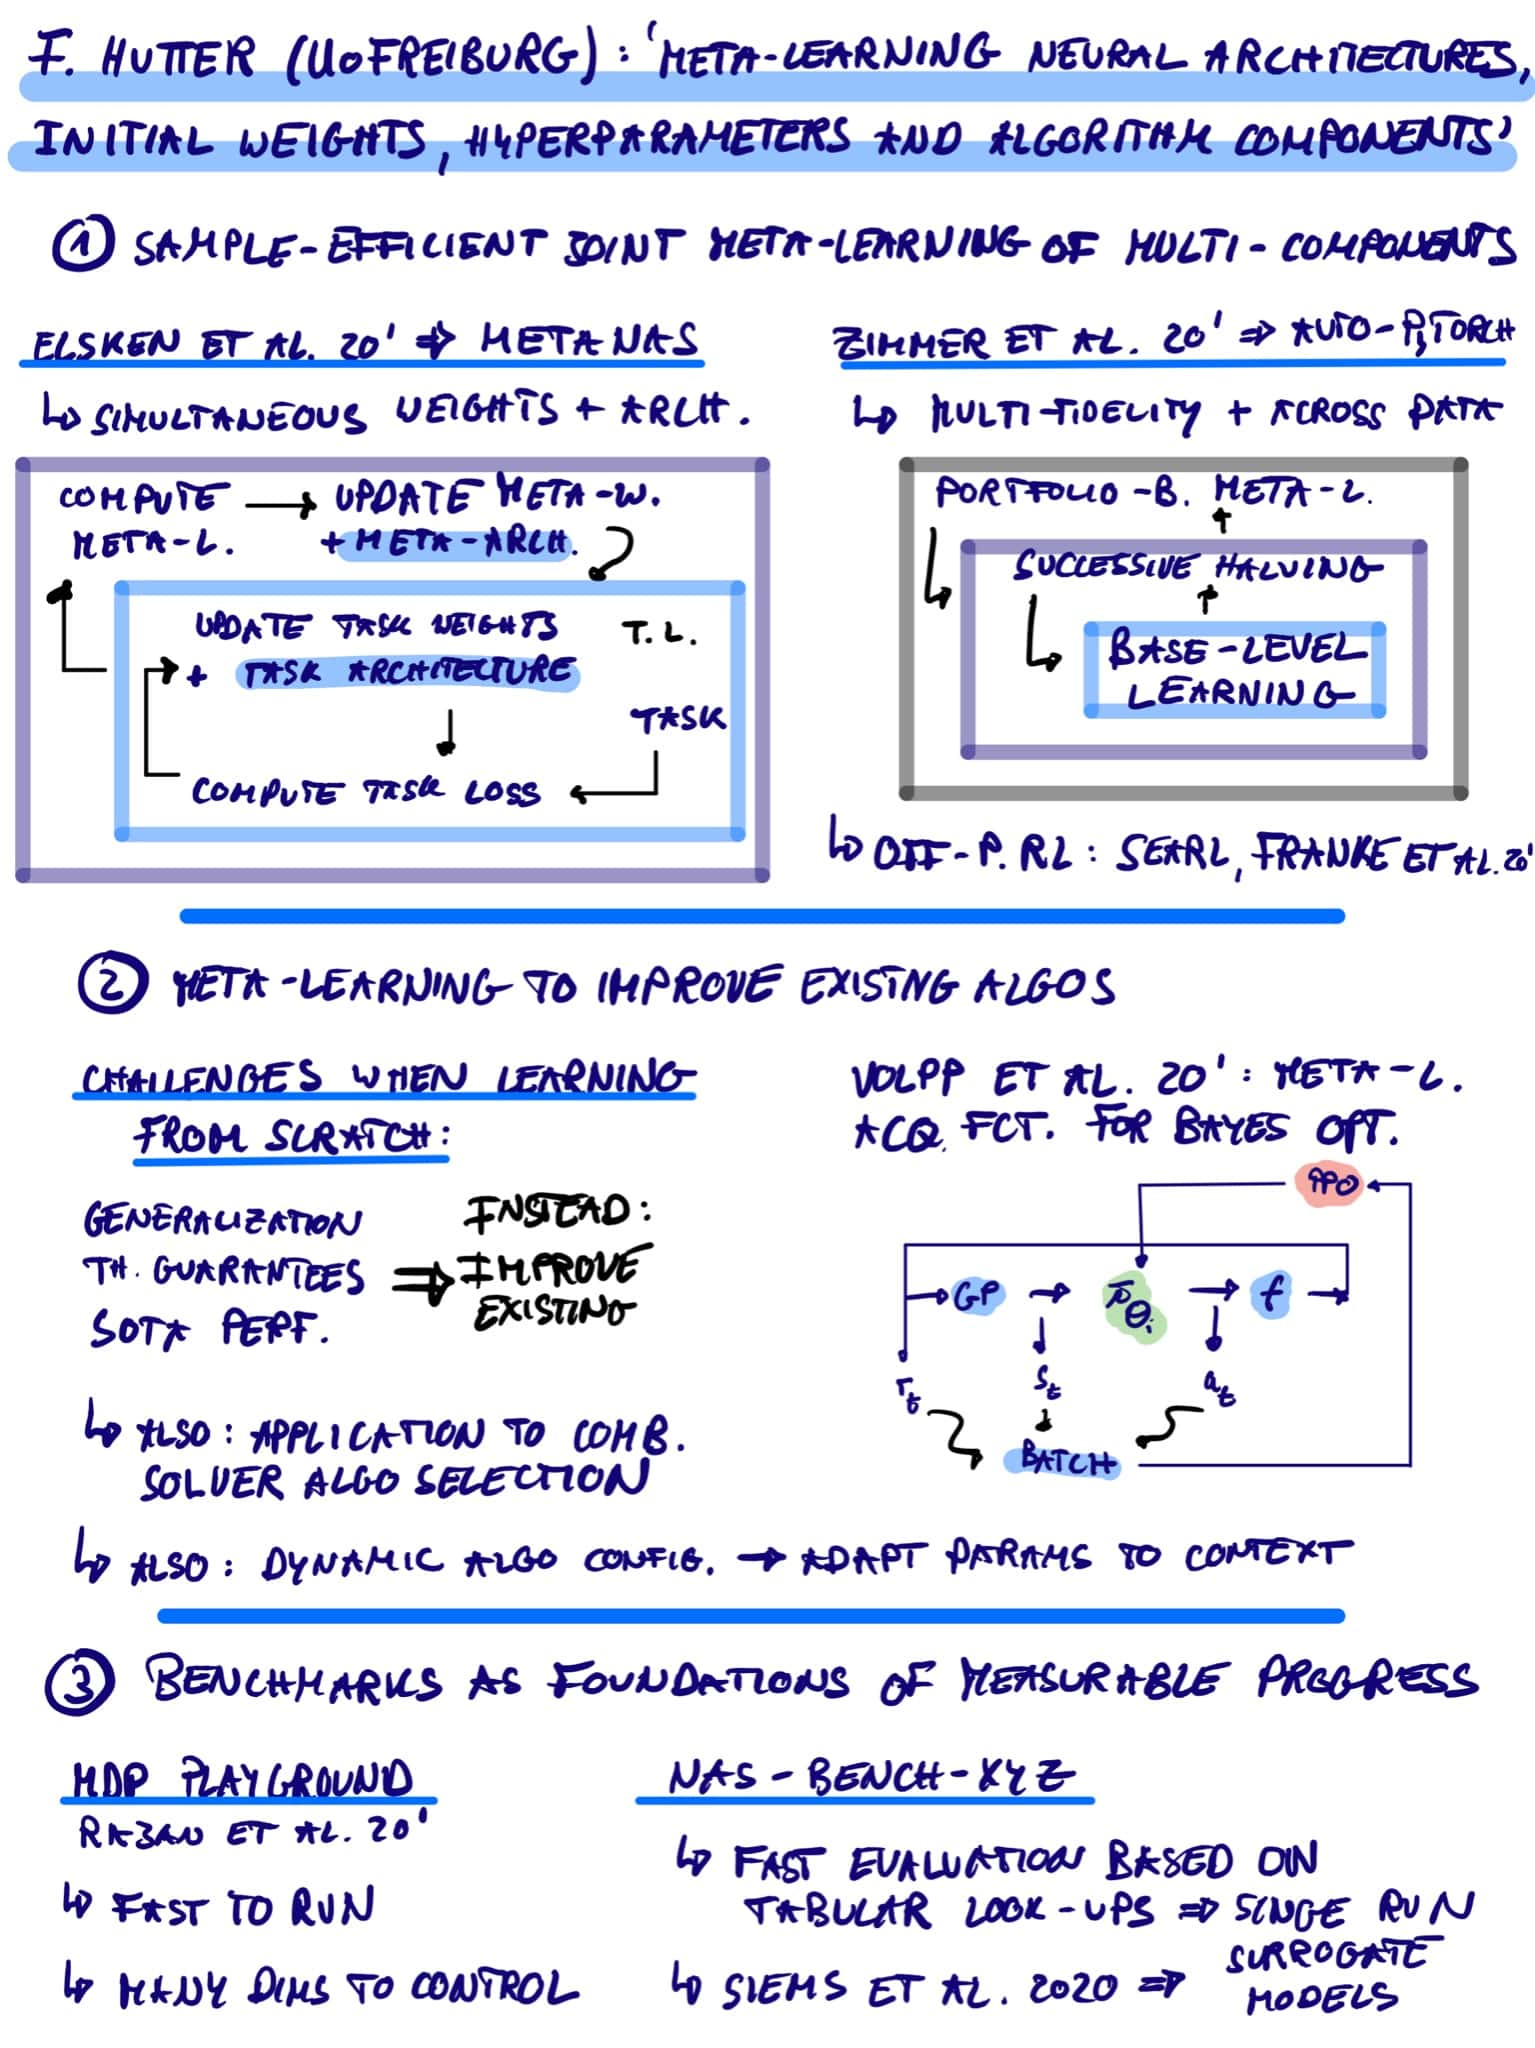 F. HUTTER (UOFREIBURG): 'META-LEARNING NEURAL ARCHITECTURES,
INITIAL WEIGHTS, HYPERPARAMETERS AND ALGORITHM COMPONENTS'
① SAMPLE-EFFICIENT JOINT META-LEARNING OF MULTI-COMPONENTS
ELSKEN ET AL. 20' ⇒ METANAS
↳ SIMULTANEOUS WEIGHTS + ARCH.
COMPUTE → UPDATE META-W.
META-L. + META-ARCH.
UPDATE TASK WEIGHTS T.L.
+ TASK ARCHITECTURE
TASK
COMPUTE TASK LOSS
ZIMMER ET AL. 20' ⇒ AUTO-PYTORCH
↳ MULTI-FIDELITY + ACROSS DATA
PORTFOLIO-B. META-L.
SUCCESSIVE HALVING
BASE-LEVEL
LEARNING
↳ OFF-P. RL: SEARL, FRANKE ET AL. 20'
② META-LEARNING TO IMPROVE EXISTING ALGOS
CHALLENGES WHEN LEARNING
FROM SCRATCH:
GENERALIZATION
TH. GUARANTEES
SOTA PERF.
⇒ INSTEAD:
IMPROVE
EXISTING
↳ ALSO: APPLICATION TO COMB.
SOLVER ALGO SELECTION
VOLPP ET AL. 20': META-L.
ACQ. FCT. FOR BAYES OPT.
PPO
→ GP → π_θi → f →
r_t s_t a_t
BATCH
↳ ALSO: DYNAMIC ALGO CONFIG. → ADAPT PARAMS TO CONTEXT
③ BENCHMARKS AS FOUNDATIONS OF MEASURABLE PROGRESS
MDP PLAYGROUND
RAJAN ET AL. 20'
↳ FAST TO RUN
↳ MANY DIMS TO CONTROL
NAS-BENCH-XYZ
↳ FAST EVALUATION BASED ON
TABULAR LOOK-UPS ⇒ SINGE RUN
↳ SIEMS ET AL. 2020 ⇒ SURROGATE
MODELS